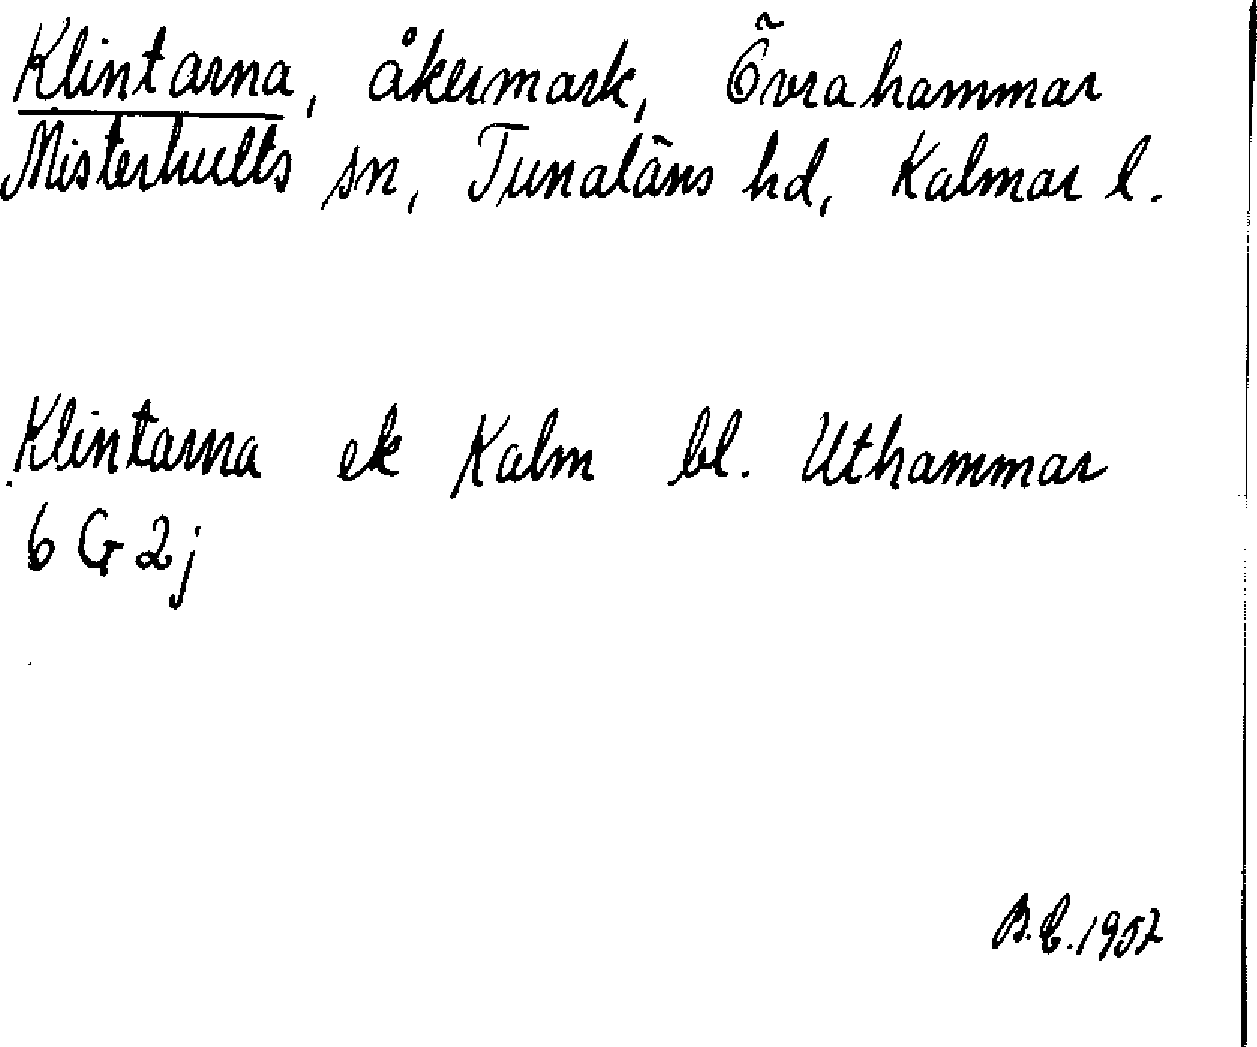 Klintarna, åkermark, Övrahammar
Misterhults sn, Tunaläns hd, Kalmar l.
Klintarna ek Kalm bl. Uthammar
6 G 2j
B.E. 1957